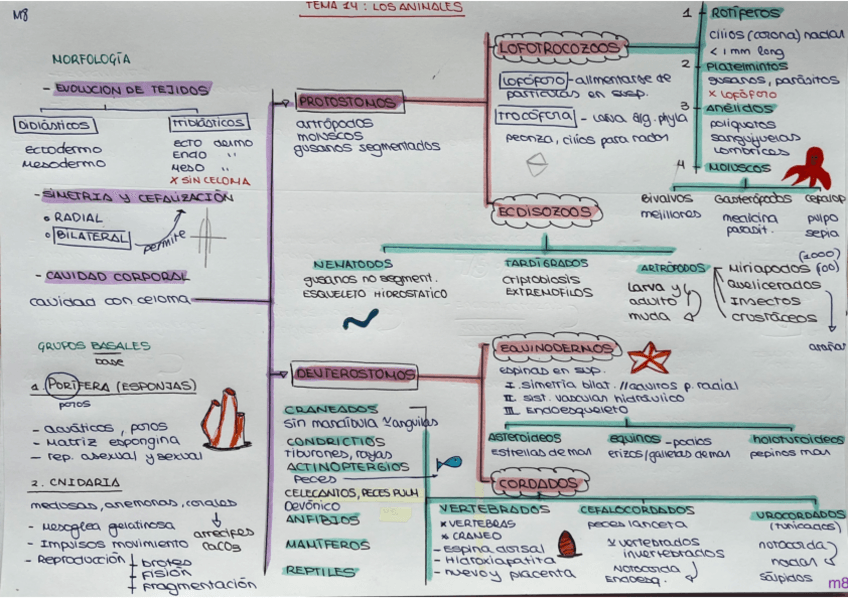 M8
TEMA 14: LOS ANIMALES
MORFOLOGÍA
- EVOLUCION DE TEJIDOS
DIDIÁSTICOS
ectodermo
mesodermo
TRIDIÁSTICOS
ECTO dermo
ENDO "
MESO "
X SIN CELOMA
- SIMETRIA Y CEFALIZACIÓN
RADIAL
BILATERAL
permite
- CAVIDAD CORPORAL
cavidad con celoma
GRUPOS BASALES
base
1. PORÍFERA (ESPONJAS)
poros
- acuáticos, poros
- Matriz espongina
- rep. asexual y sexual
2. CNIDARIA
medusas, anemonas, corales
arrecifes
CaCO3
- Mesoglea gelatinosa
- Impulsos movimiento
- Reproducción
brotes
fisión
fragmentación
PROTOSTOMOS
artrópodos
moluscos
gusanos segmentados
LOFOTROCOZOOS
Lofóforo - alimentarse de
partículas en susp.
trocófora - larva alg. phyla
peonza, cilios para nadar
1 - ROTÍFEROS
cilios (corona) nadar
< 1 mm long
2 PLATELMINTOS
gusanos, parásitos
X LOFÓFORO
3 Anélidos
poliquetos
sanguijuelas
lombrices
4 - MOLUSCOS
Bivalvos
mejillones
Gasterópodos
medicina
parasit.
cefalop
pulpo
sepia
ECDISOZOOS
NEMATODOS
gusanos no segment.
ESQUELETO HIDROSTATICO
TARDÍGRADOS
criptobiosis
EXTREMOFILOS
ARTRÓPODOS
larva y
adulto
muda
(1000)
Miriapodos (00)
Quelicerados
Insectos
crustáceos
arañas
DEUTEROSTOMOS
EQUINODERMOS
espinas en sup.
I. simetría bilat. // adultos p. radial
II. sist. vascular hidráulico
III. Endoesqueleto
Asteroideos
estrellas de mar
equinos - pocios
erizos/galletas de mar
holoturoideos
pepinos mar
CORDADOS
CRANEADOS
sin mandíbula anguilas
CONDRICTIOS
tiburones, rayas
ACTINOPTERGIOS
peces
CELECANTOS, PECES PULM
Devónico
ANFIBIOS
MAMÍFEROS
REPTILES
VERTEBRADOS
X VERTEBRAS
X CRANEO
- Espina dorsal
- Hidroxiapatita
- huevo y placenta
CEFALOCORDADOS
peces lanceta
X vertebrados
invertebrados
Notocorda
Endoesq.
UROCORDADOS
(tunicados)
notocorda
nadar
sálpidos
m8